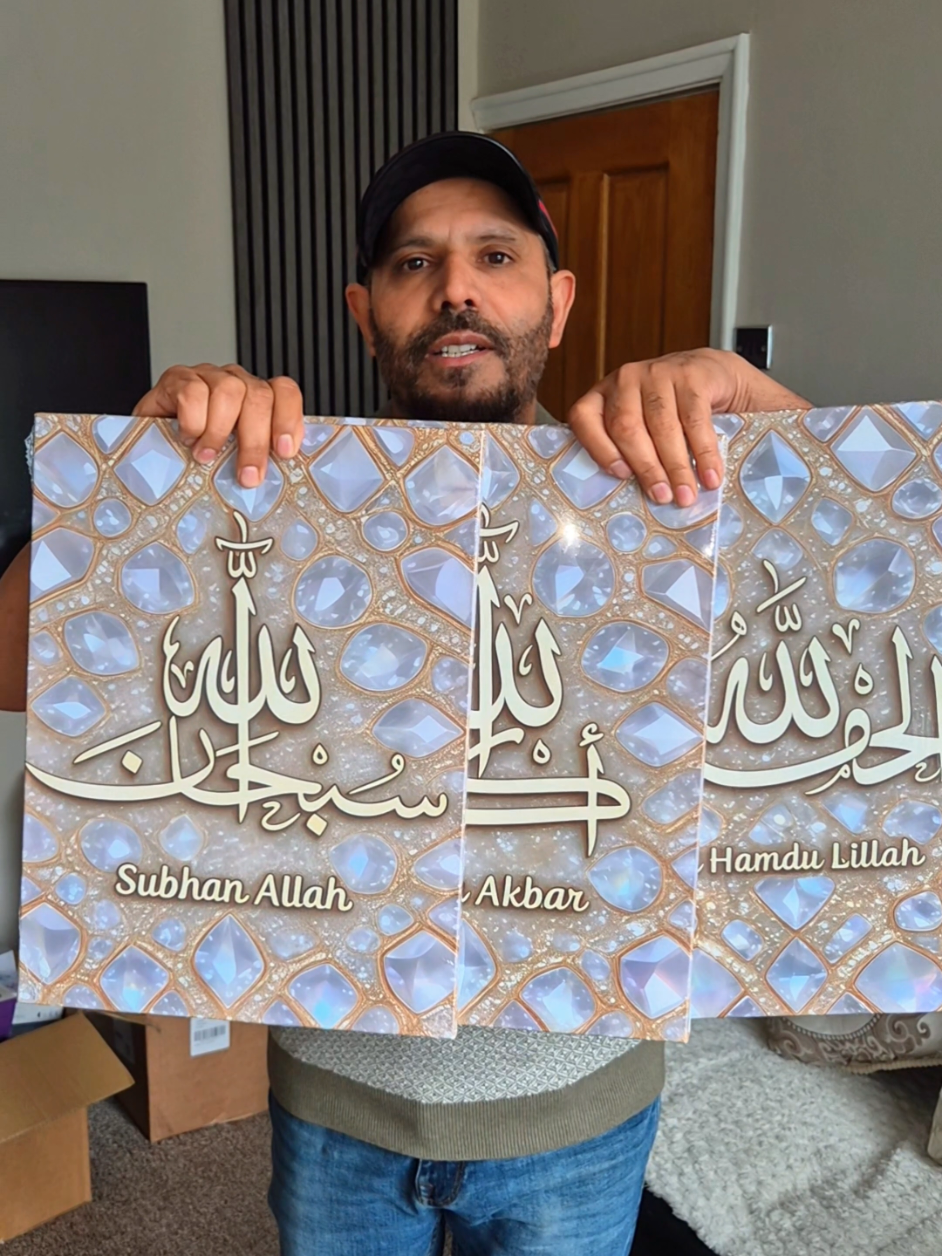 سبحان الله
Subhan Allah
Akbar
الحمد لله
Hamdu Lillah